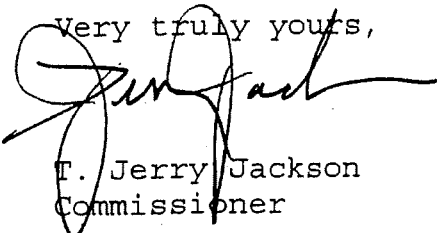 Very truly yours,
Jerry Jack
T. Jerry Jackson
Commissioner